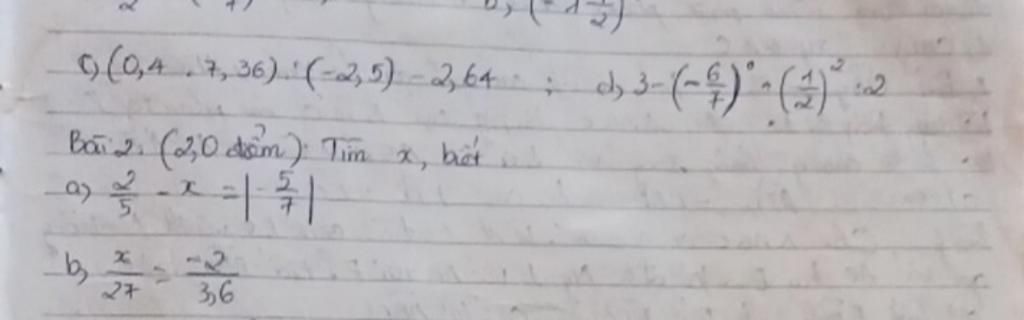 b, (-1 1/2)
c, (0,4 . 7,36) : (-2,5) - 2,64 ; d, 3 - (-6/7)⁰ + (1/2)² : 2
Bài 2. (2,0 điểm) Tìm x, biết
a) 2/5 - x = |-5/7|
b, x/27 = -2/3,6